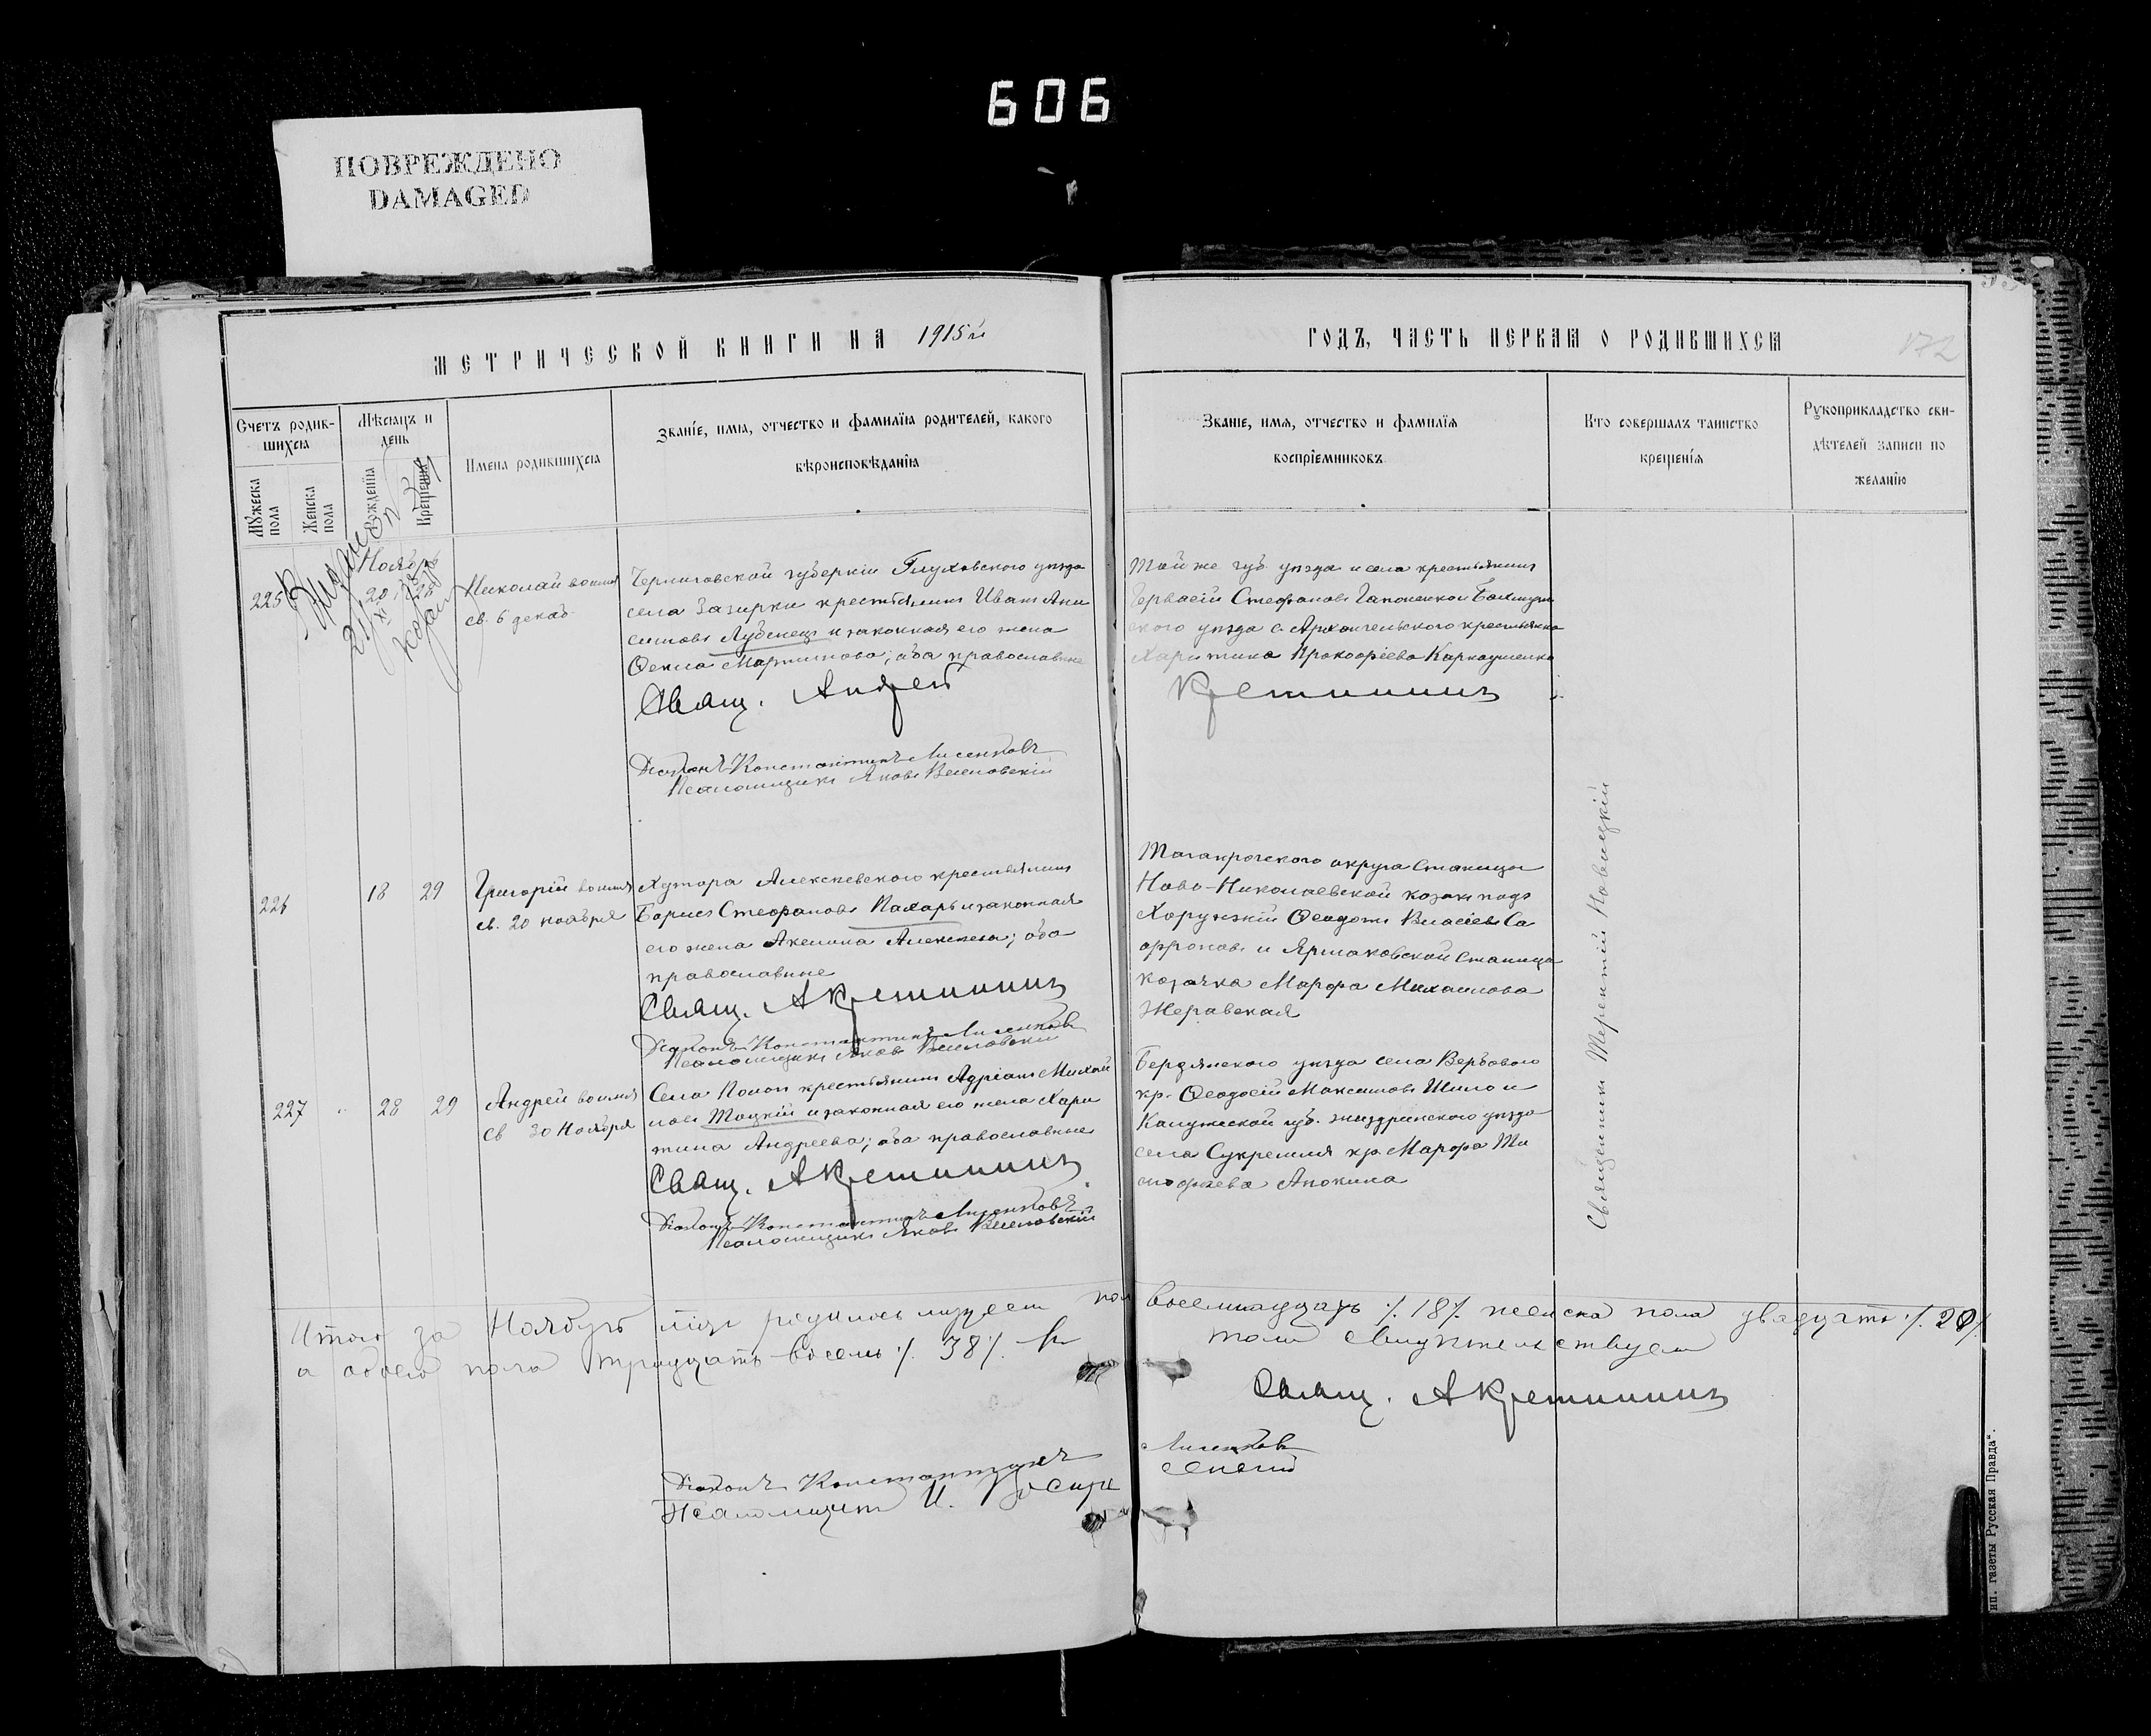 606
ПОВРЕЖДЕНО
DAMAGED
МЕТРИЧЕСКОЙ КНИГИ НА 1915й
ГОДЪ, ЧАСТЬ ПЕРВАЯ О РОДИВШИХСЯ
172
Счетъ родив-
шихся
Мужеска пола
Женска пола
Мѣсяцъ и
день
Рожденія
Крещенія
Имена родившихся
Званіе, имя, отчество и фамилія родителей, какого
вѣроисповѣданія
Званіе, имя, отчество и фамилія
воспріемниковъ
Кто совершалъ таинство
крещенія
Рукоприкладство сви-
дѣтелей записи по
желанію
Ноябрь
225
20 28
Николай во имя
св. 6 декаб.
Черниговской губерніи Глуховского уѣзда
села Зазирки крестьянинъ Иванъ Ани
симовъ Лубенецъ и законная его жена
Ѳекла Мартинова; оба православные
Свящ. Андрей
Діаконъ Константинъ Лисенковъ
Псаломщикъ Яковъ
Той же губ. уѣзда и села крестьянинъ
Гервасій Стефановъ Гапоненко и Бахмут
ского уѣзда с. Архангельского крестьянка
Харитина Прокофіева
Кретининъ
226
18 29
Григорій во имя
св. 20 ноября
Хутора Алексѣевского крестьянинъ
Борисъ Стефановъ Пахарь и законная
его жена Акелина Алексѣева; оба
православные
Свящ. А Кретининъ
Діаконъ Константинъ Лисенковъ
Псаломщикъ Яковъ
Таганрогского округа Станицы
Ново-Николаевской козакъ подъ
Хорунжій Ѳеодотъ Власіевъ Са
фроновъ и Ярмаковской станицы
козачка Марфа Михаилова
Жеравская
227 " 28 29
Андрей во имя
св 30 Ноября
Села Пологъ крестьянинъ Адріанъ Михай
ловъ Тоцкій и законная его жена Хари
тина Андреева; оба православные
Свящ. А Кретининъ
Діаконъ Константинъ Лисенковъ
Псаломщикъ Яковъ
Бердянского уѣзда села Вербового
кр. Ѳеодосій Максимовъ Шило и
Калужской губ. жиздринского уѣзда
села Сукремля кр. Марфа Ти
мофѣева Анокина
Священникъ Терентій Новицкій
Итого за Ноябрь мѣсяц родилось мужеск пол восемнадцать /. 18 /. женска пола двадцать /. 20 /.
а обоего пола тридцать восемь /. 38 /. В
томъ свидѣтельствуем
Свящ. А Кретининъ
Діаконъ Константинъ Лисенковъ
Псаломщикъ И.
ип. газеты Русская Правда".